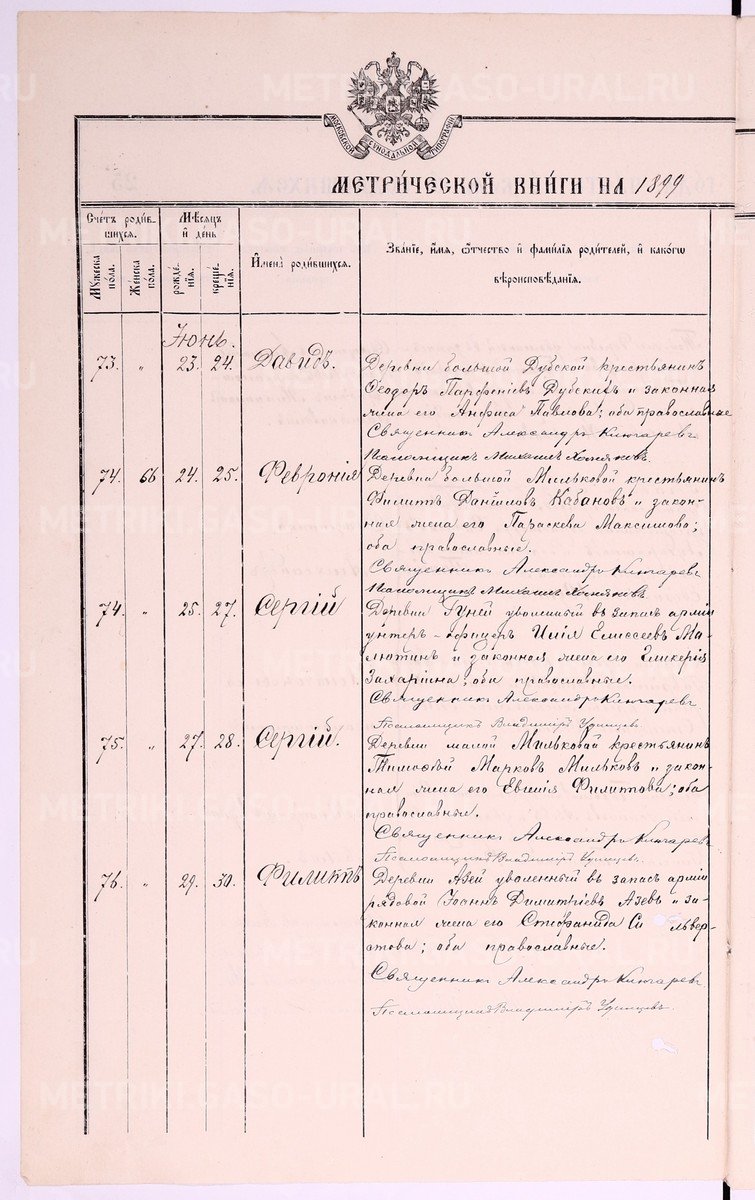 МОСКОВСКОЙ СѴНОДАЛЬНОЙ ТИПОГРАФІИ
МЕТРИ́ЧЕСКОЙ КНИ́ГИ НА 1899
Сче́тъ роди́в-
шихся.
Мѣ́сяцъ
и҆ де́нь
И҆мена̀ роди́вшихся.
Зва́ніе, и҆́мя, ѻ҆́тчество и҆ фами́лія роди́телей, и҆ како́гѡ
вѣроисповѣ́данія.
Мꙋ́жеска
по́ла.
Же́нска
по́ла.
рожде́-
нія.
креще́-
нія.
Іюнь.
73. " 23. 24. Давидъ. Деревни большой Дубской крестьянинъ
Ѳеодоръ Парѳеніевъ Дубскихъ и законная
жена его Анфиса Павлова; оба православные
Священникъ Александръ Ключаревъ
Псаломщикъ Михаилъ Хомяковъ.
74. 66 24. 25. Феврονія Деревни большой Мильковой крестьянинъ
Филиппъ Даніиловъ Кабановъ и закон-
ная жена его Параскева Максимова;
оба православные.
Священникъ Александръ Ключаревъ
Псаломщикъ Михаилъ Хомяковъ
74. " 25. 27. Сергій Деревни Гуней уволенный въ запасъ арміи
унтеръ-офицеръ Илія Елисеевъ Ма-
лютинъ и законная жена его Гликерія
Захаріина; оба православные.
Священникъ Александръ Ключаревъ
Псаломщикъ Владиміръ Удинцевъ.
75. " 27. 28. Сергій. Деревни малой Мильковой крестьянинъ
Тимоѳей Марковъ Мильковъ и закон-
ная жена его Евгенія Филиппова; оба
православные.
Священникъ Александръ Ключаревъ
Псаломщикъ Владиміръ Удинцевъ.
76. " 29. 30. Филиппъ Деревни Азей уволенный въ запасъ арміи
рядовой Іоаннъ Димитріевъ Азевъ и за-
конная жена его Стефанида Сильвер-
стова; оба православные.
Священникъ Александръ Ключаревъ
Псаломщикъ Владиміръ Удинцевъ.
METRIKI.GASO-URAL.RU